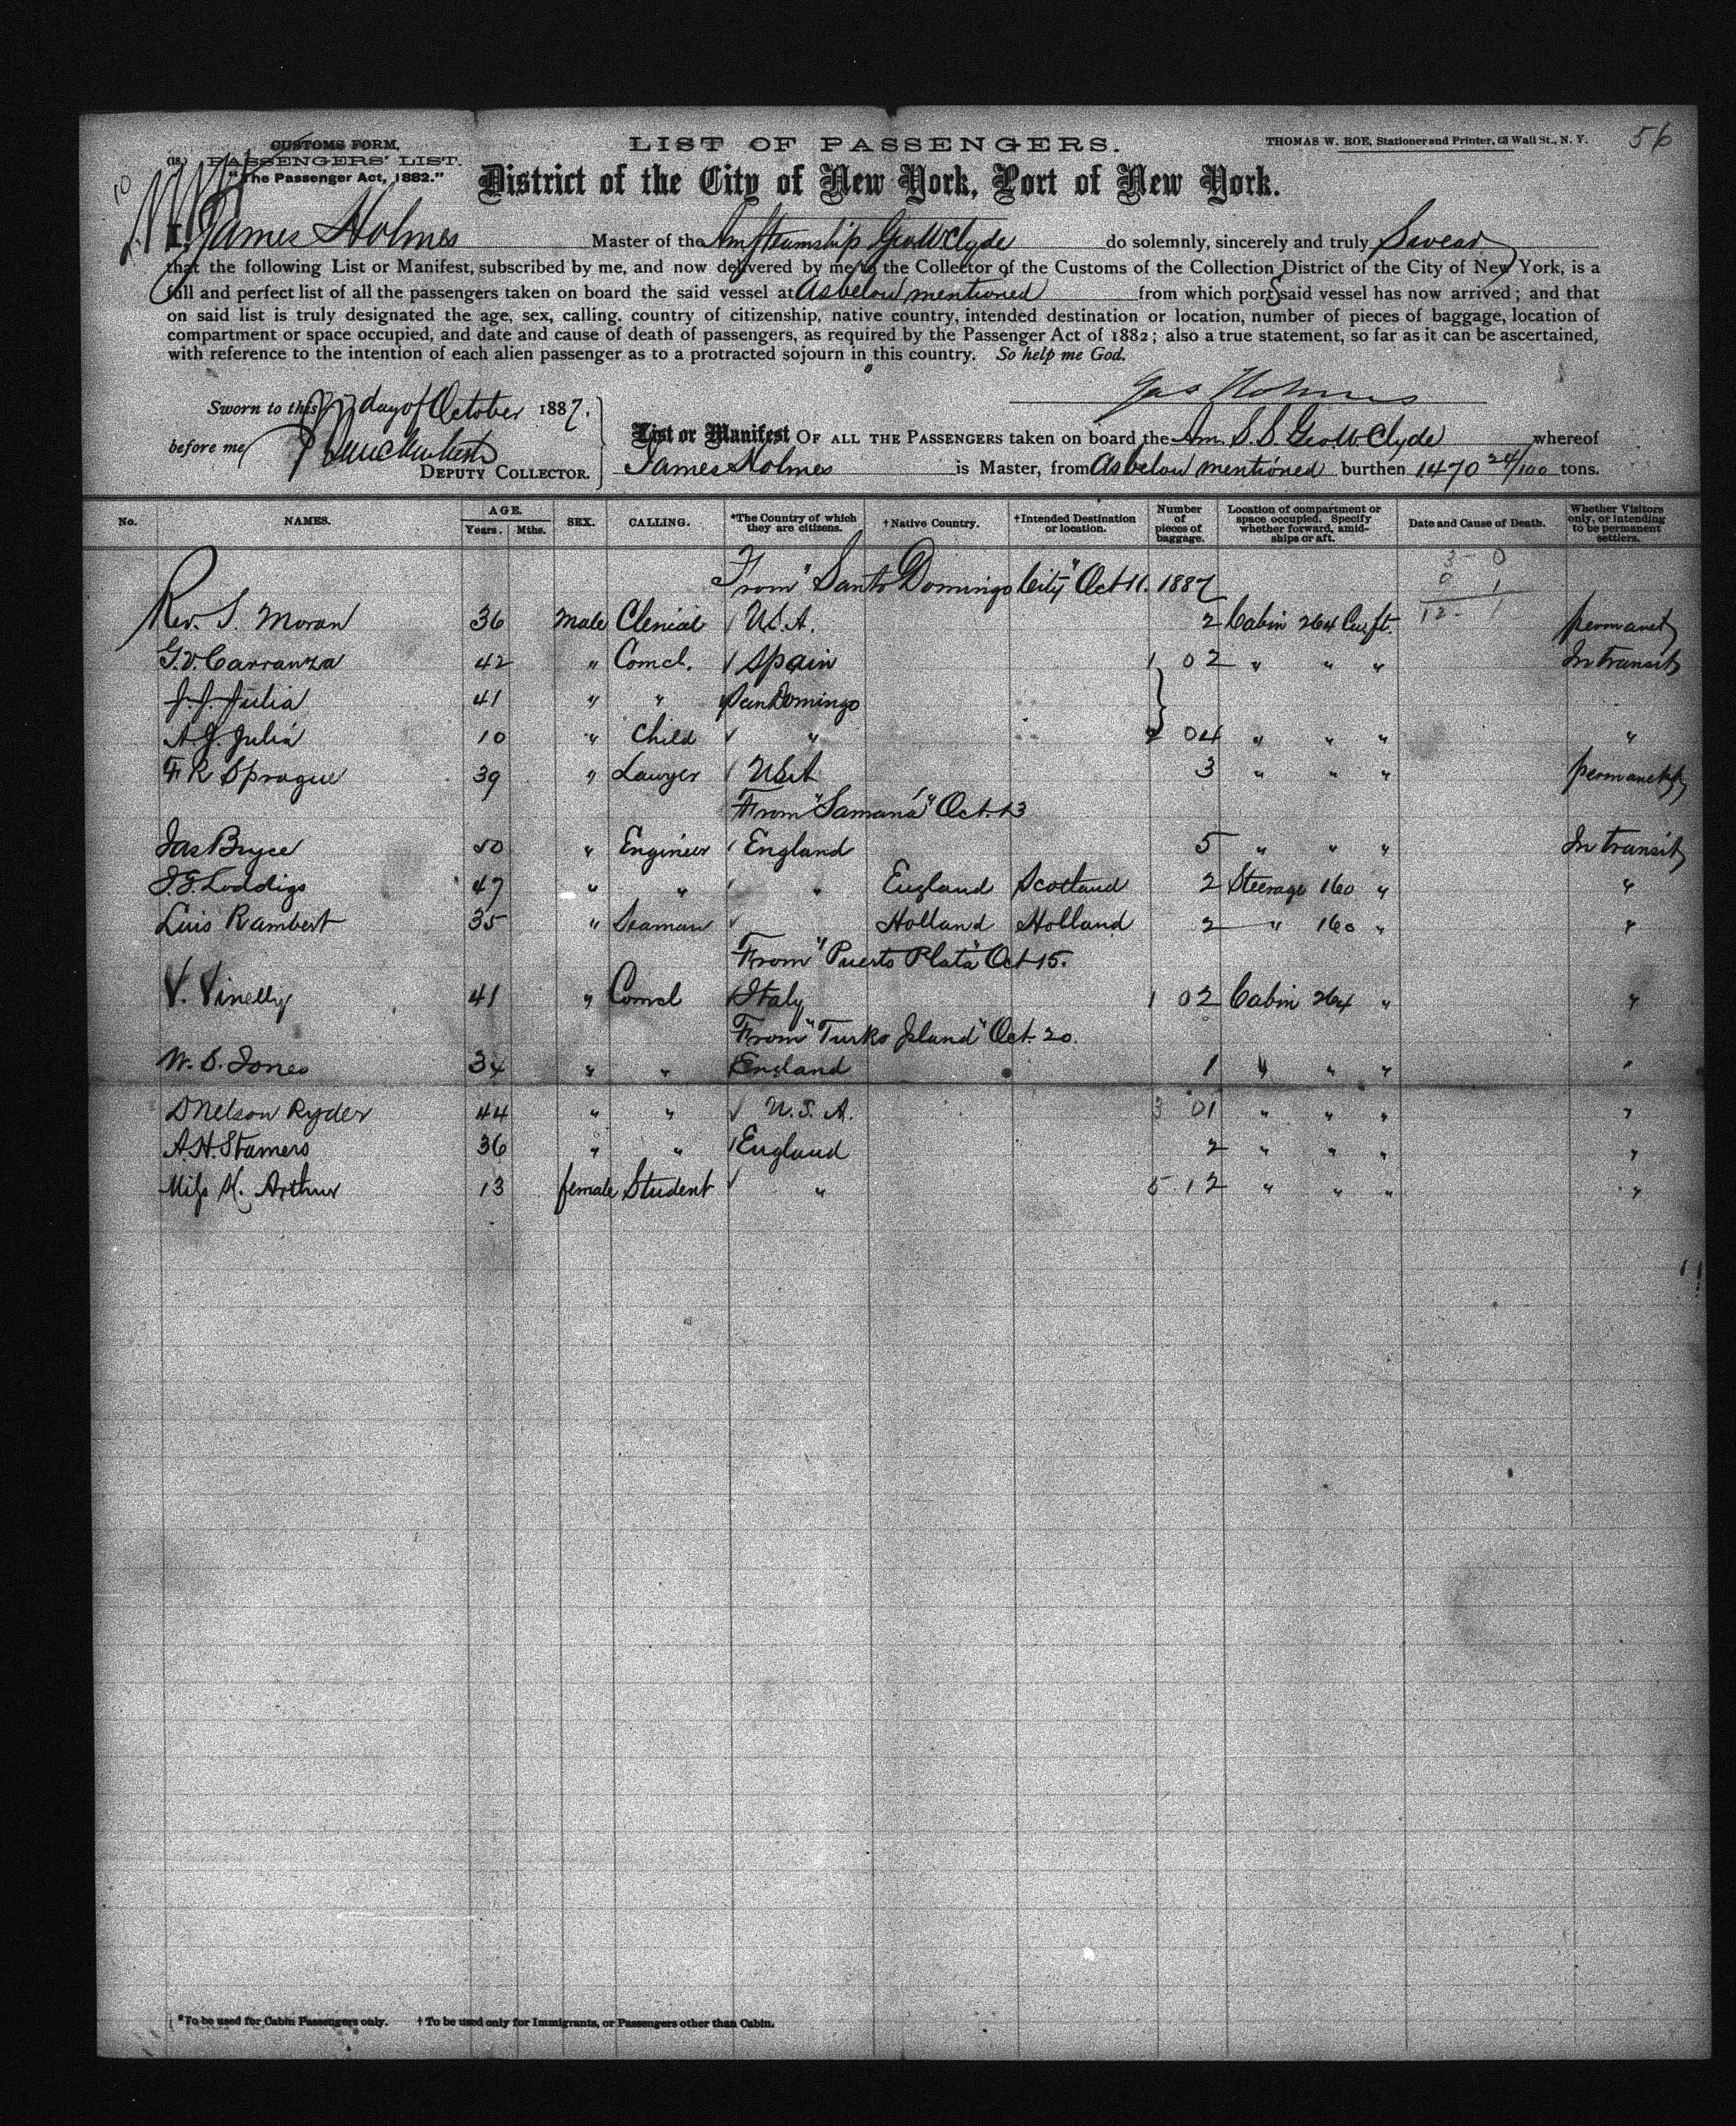 56
CUSTOMS FORM,
LIST OF PASSENGERS.
THOMAS W. ROE, Stationer and Printer, 63 Wall St., N. Y.
(18.) PASSENGERS' LIST.
"The Passenger Act, 1882."
10
District of the City of New York, Port of New York.
I, James Holmes Master of the Am Steamship Geo W Clyde do solemnly, sincerely and truly Swear
that the following List or Manifest, subscribed by me, and now delivered by me to the Collector of the Customs of the Collection District of the City of New York, is a
full and perfect list of all the passengers taken on board the said vessel at As below mentioned from which ports said vessel has now arrived; and that
on said list is truly designated the age, sex, calling, country of citizenship, native country, intended destination or location, number of pieces of baggage, location of
compartment or space occupied, and date and cause of death of passengers, as required by the Passenger Act of 1882; also a true statement, so far as it can be ascertained,
with reference to the intention of each alien passenger as to a protracted sojourn in this country. So help me God.
Jas Holmes
Sworn to this 27 day of October 1887.
before me
DEPUTY COLLECTOR.
List or Manifest OF ALL THE PASSENGERS taken on board the Am. S.S. Geo W Clyde whereof
James Holmes is Master, from As below mentioned burthen 1470 24/100 tons.
No. NAMES. AGE. Years. Mths. SEX. CALLING. *The Country of which they are citizens. †Native Country. †Intended Destination or location. Number of pieces of baggage. Location of compartment or space occupied. Specify whether forward, amidships or aft. Date and Cause of Death. Whether Visitors only, or intending to be permanent settlers.
3 - 0
9 1
12 - 1
From "Santo Domingo City" Oct 11. 1887
Rev. S. Moran 36 male Clerical U.S.A. 2 Cabin 264 Cu. ft. permanent
G.V. Carranza 42 " Comcl. Spain 1 02 " " " In transit
J.J. Julia 41 " " San Domingo
A.J. Julia 10 " Child " 2 04 " " " "
F R Sprague 39 " Lawyer USA 3 " " " permanent
From "Samaná" Oct. 13
Jas Bryce 50 " Engineer England 5 " " " In transit
J.G. Loddigs 47 " " " England Scotland 2 Steerage 160 " "
Luis Rambert 35 " Seaman Holland Holland 2 " 160 " "
From "Puerto Plata" Oct 15.
V. Vinelly 41 " Comcl Italy 1 02 Cabin 264 " "
From "Turks Island" Oct. 20.
W. S. Jones 34 " " England 1 " " " "
D Nelson Ryder 44 " " U.S.A. 3 01 " " " "
A.H. Stamers 36 " " England 2 " " " "
Miss K. Arthur 13 female Student " 5 12 " " " "
*To be used for Cabin Passengers only. †To be used only for Immigrants, or Passengers other than Cabin.